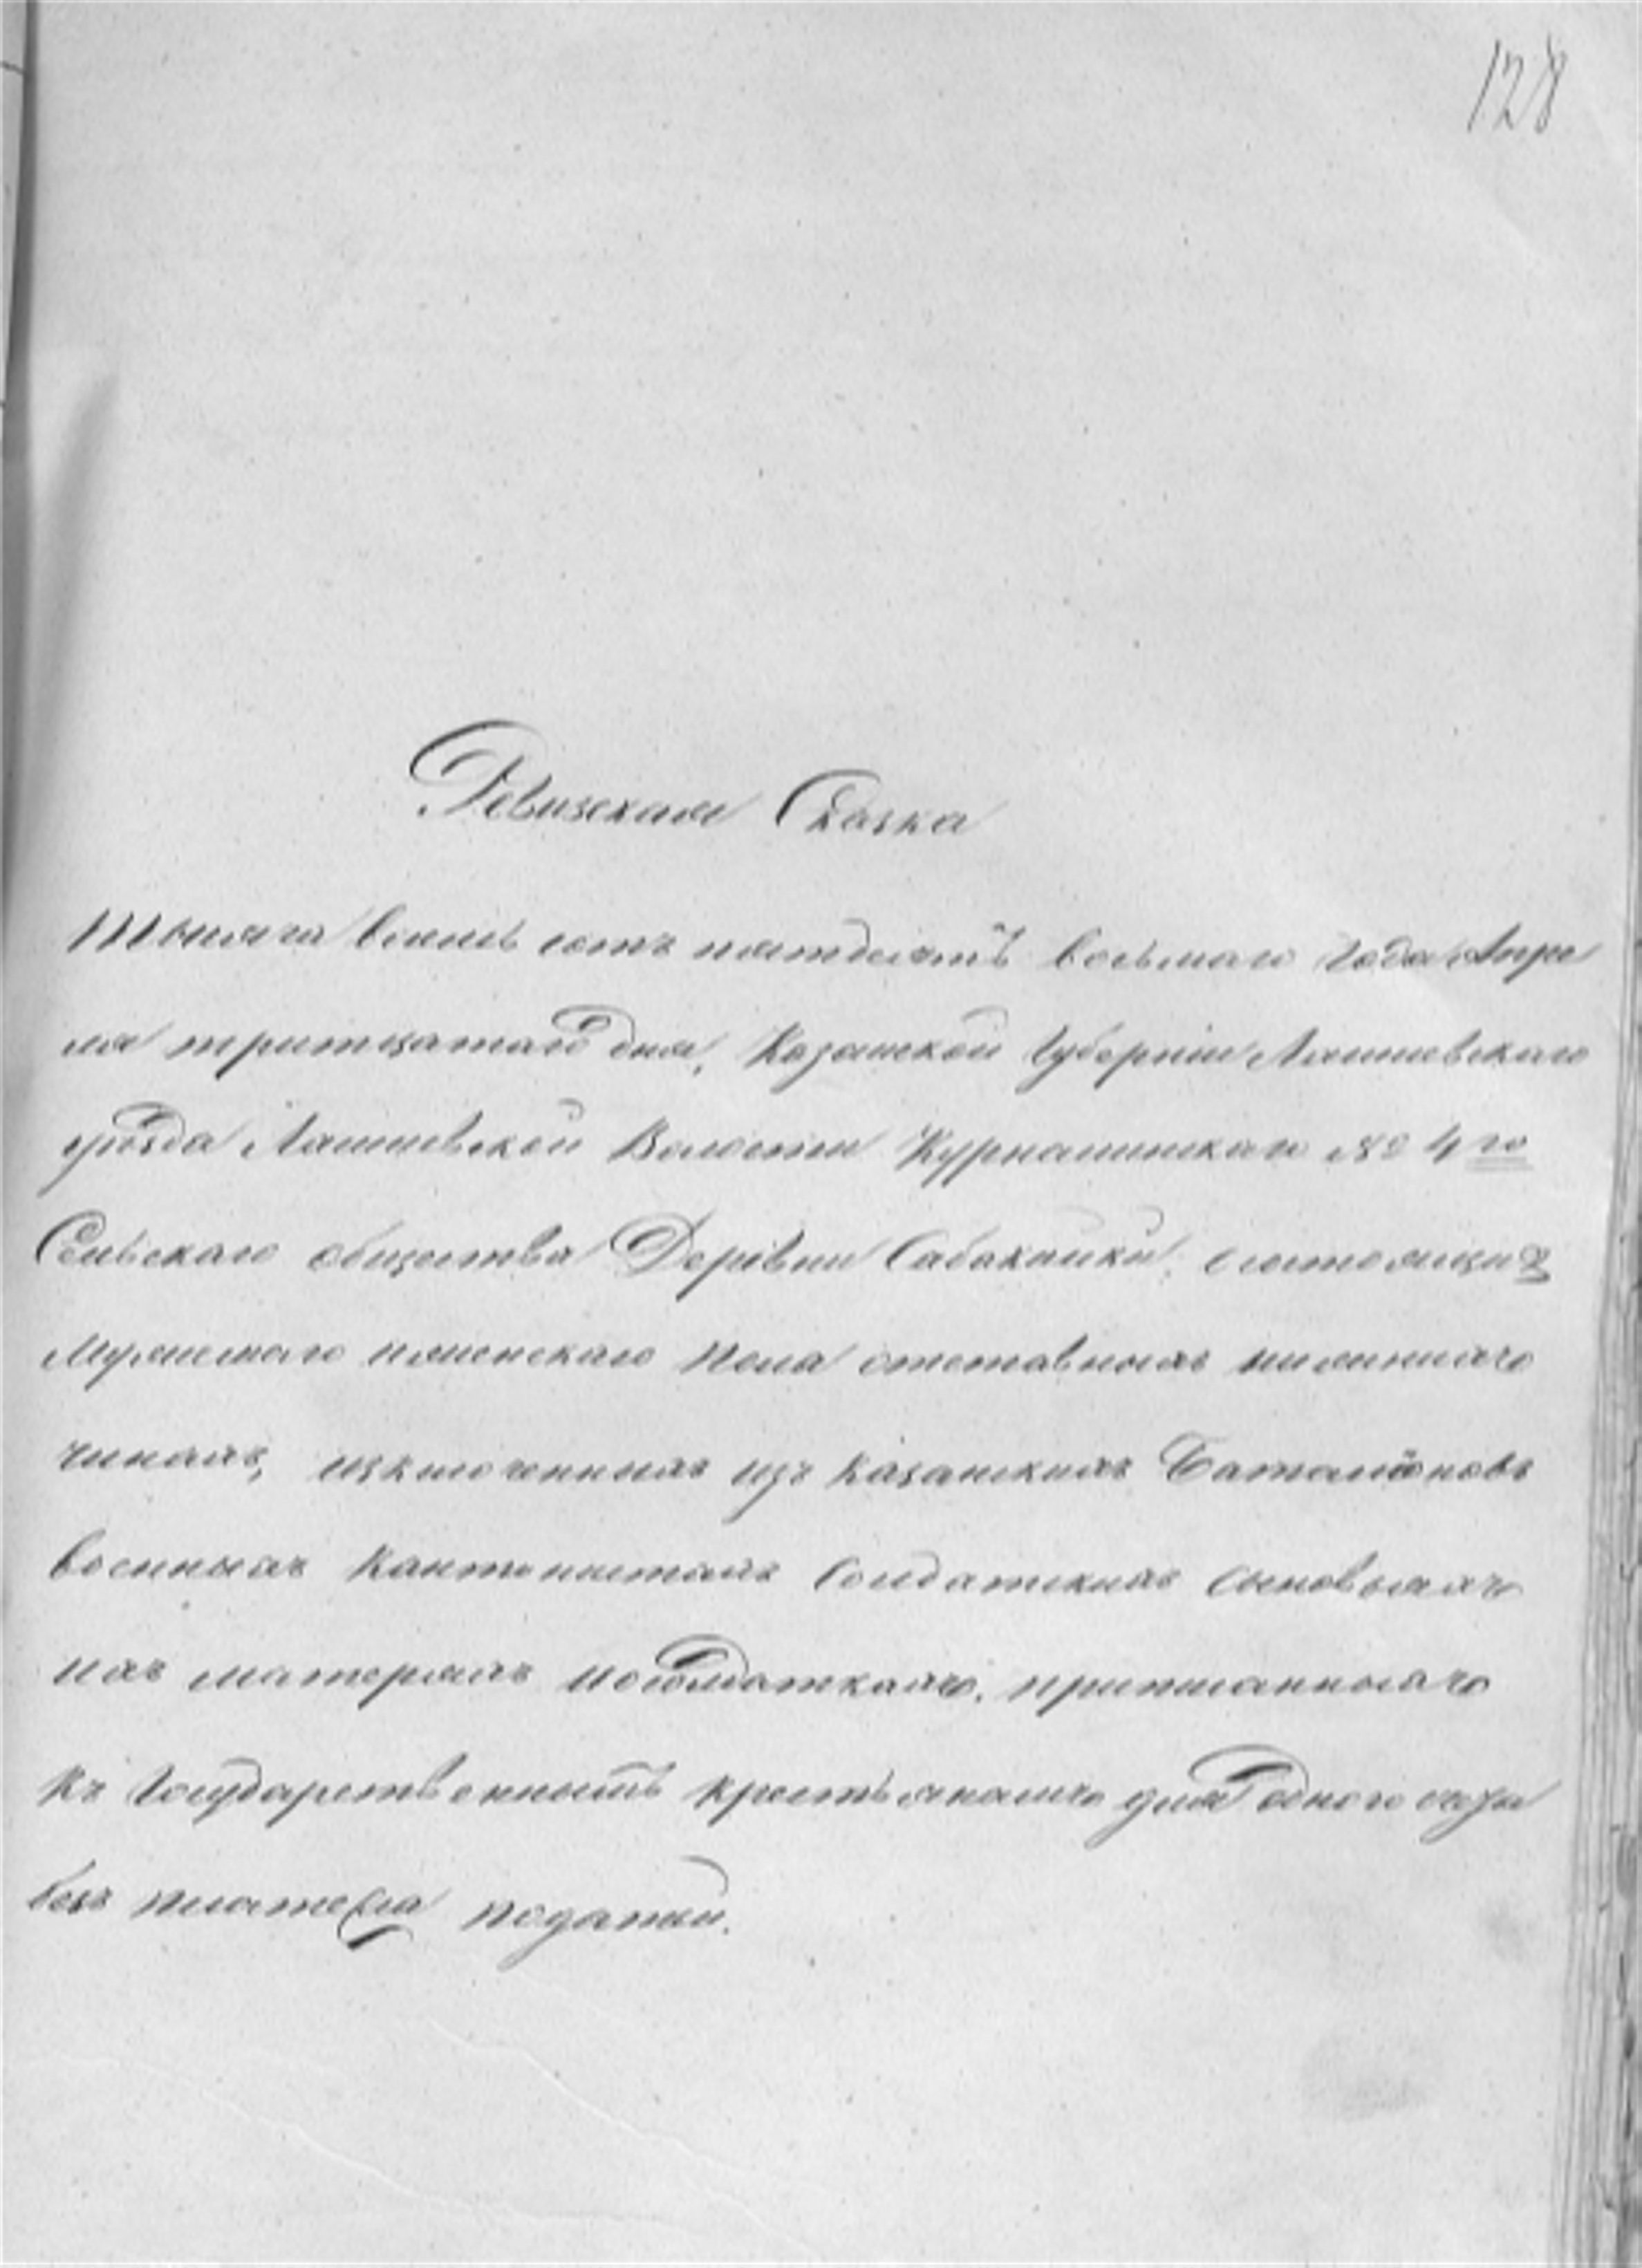 128
Ревизская Сказка
Тысяча восемь сотъ пятдесятъ восьмаго года Апре
ля тритцатаго дня, Казанской Губерніи Лаишевскаго
уѣзда Лаишевской Волости Курнашинскаго № 4го
Сельскаго общества Деревни Сабакайки, о состоящихъ
Мужескаго и женскаго пола отставныхъ нижнихъ
чинахъ, изключенныхъ изъ казанскихъ Баталіоновъ
военныхъ кантонистахъ Солдатскихъ сыновьяхъ
ихъ матеряхъ и солдаткахъ, приписанныхъ
къ Государственнымъ крестьянамъ для одного счета
безъ платежа податей.